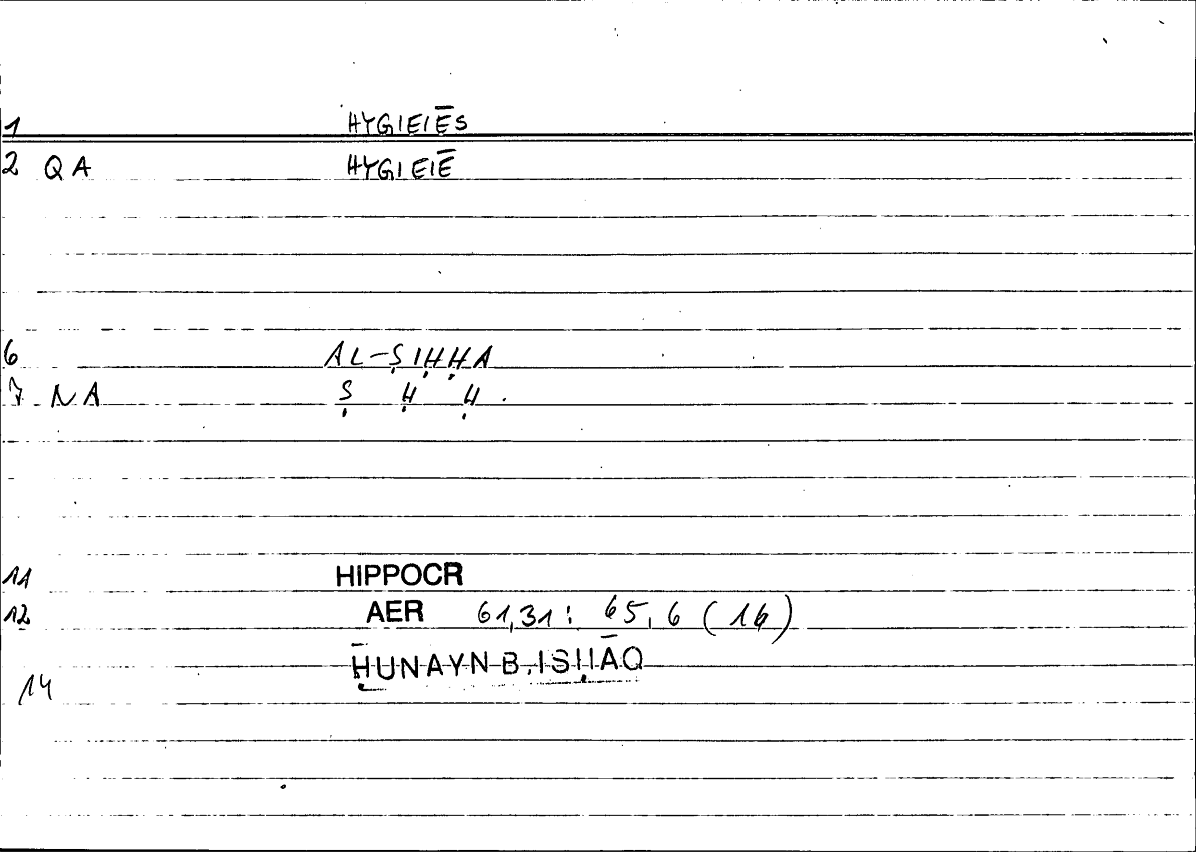 1 HYGIEIĒS
2 QA HYGIEIĒ
6 AL-ṢIḤḤA
7 NA Ṣ Ḥ Ḥ
11 HIPPOCR
12 AER 61,31: 65,6 (16)
ḤUNAYN B. ISḤĀQ
14